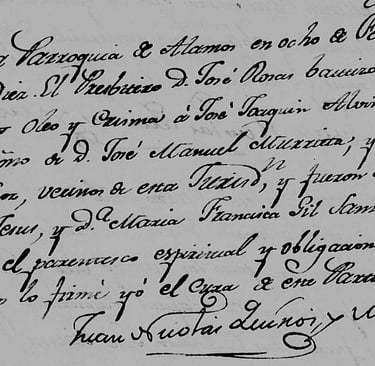 Parroquia de Alamos en ocho de
Diez. El Presbitero D. José Rosas
Oleo y Crisma á José Joaquin
de D. José Manuel Murrieta, y
vecinos de esta Jurisd.n y fueron
y d.a Maria Francisca Gil
el parentesco espiritual y obligacion
lo firmé yó el Cura de este
Juan Nicolas Quiros, y